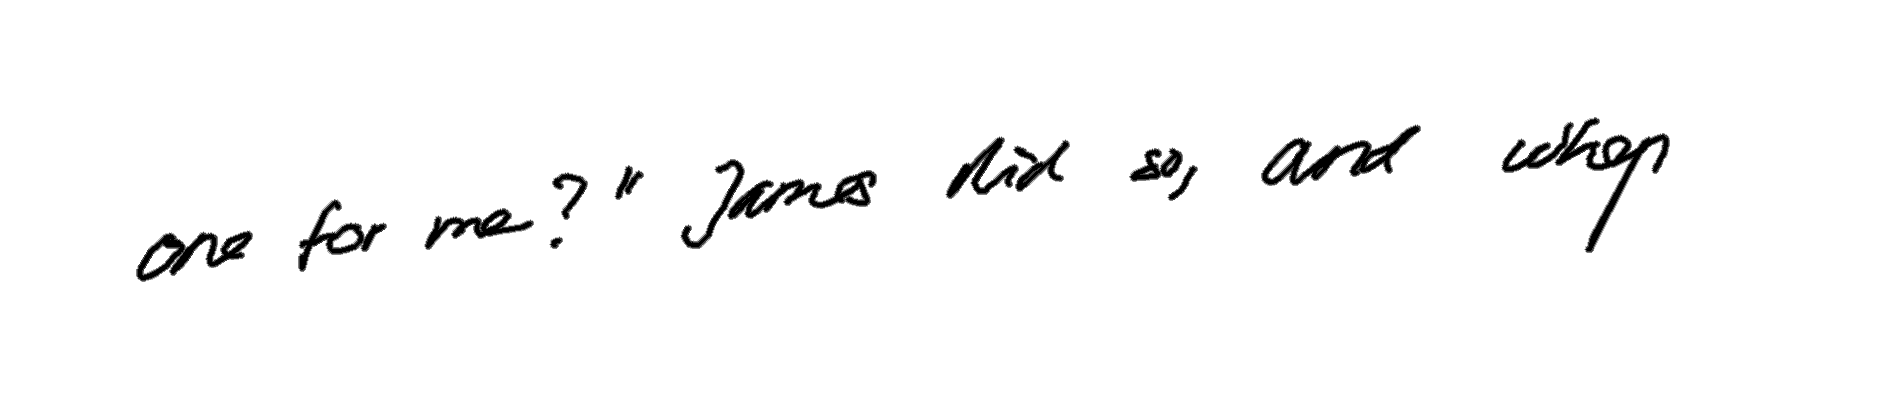 one for me?" James did so, and when